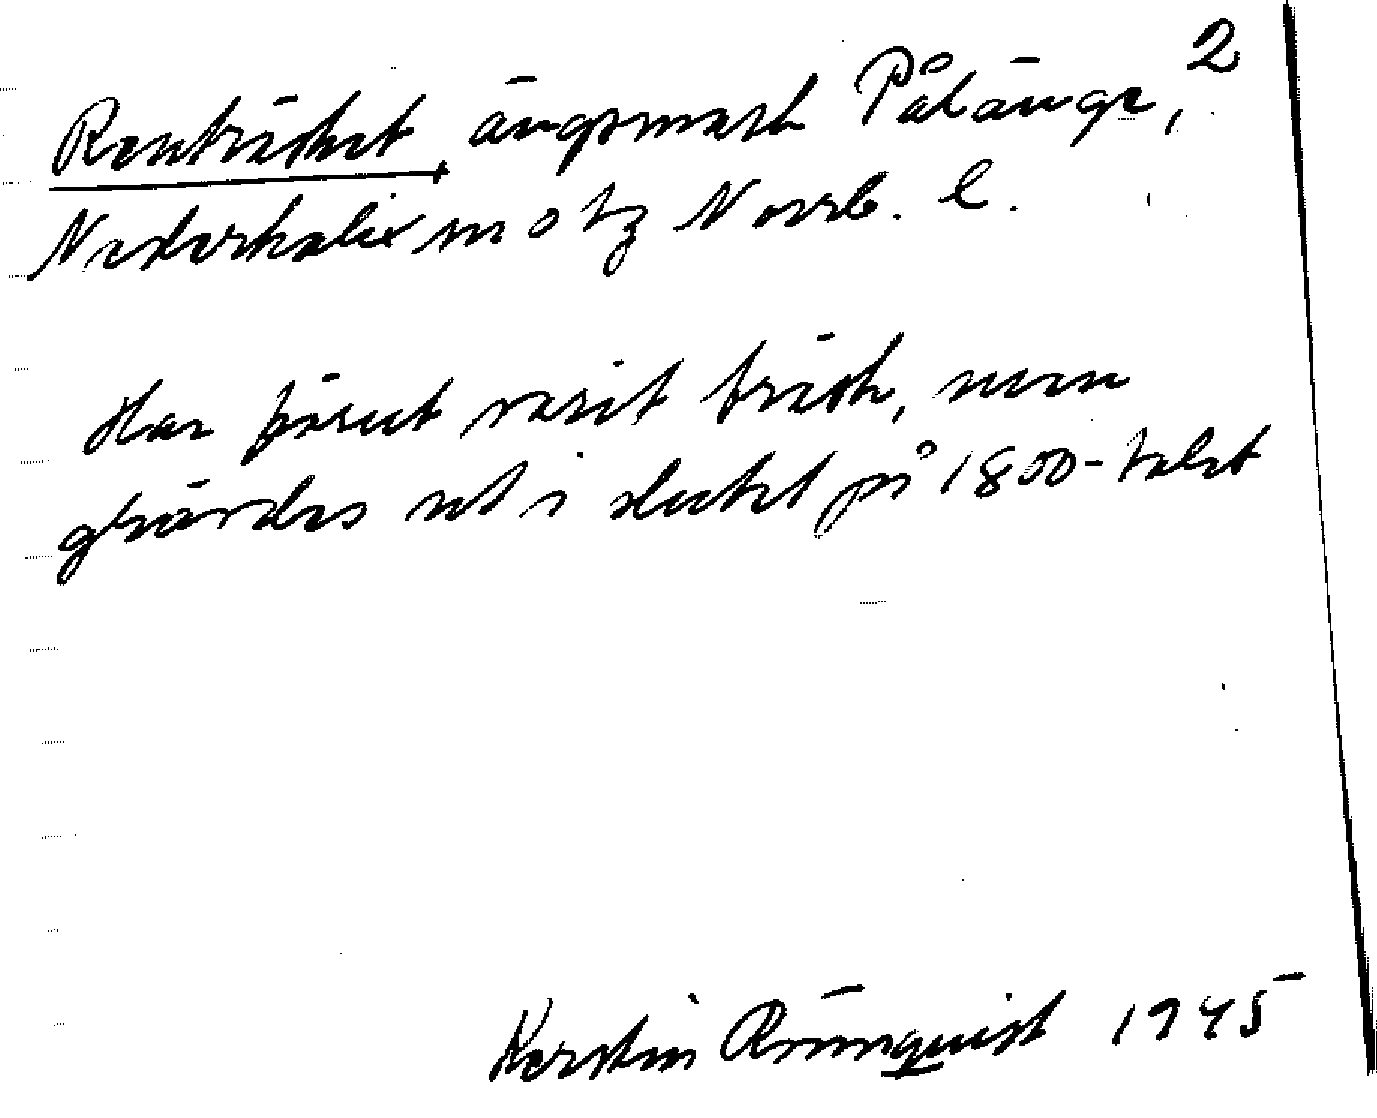 2
Renträsket, ängsmark Pålänge,
Nederkalix sn o tg Norrb. l.
Har förut varit träsk, men
grävdes ut i slutet på 1800-talet
Kerstin Rönnquist 1945